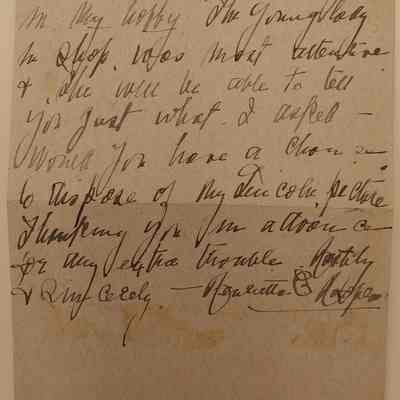 in my hobby The young lady
in shop was most attentive
& she will be able to tell
you just what I asked –
Would you have a chance
to dispose of my Lincoln picture
Thanking you in advance
for any extra trouble. Hastily
& Sincerely – Henrietta B